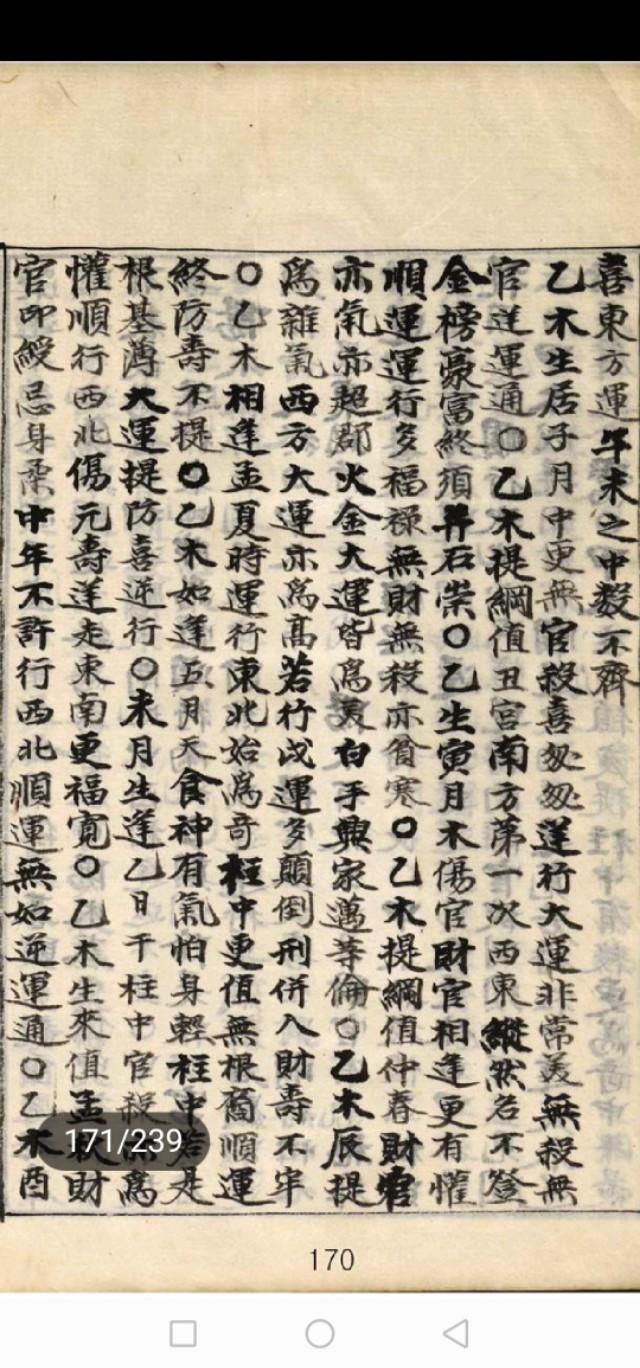 喜東方運午未之中數不齊
乙木生居子月中更無官殺喜匆匆逆行大運非常美無殺無
官逆運通〇乙木提綱値丑宮南方苐一次西東縱然名不登
金榜豪富終須並石崇〇乙生寅月木傷官財官相逢更有懽
順運運行多福禄無財無殺亦貧寒〇乙木提綱值仲春財官
亦氣亦超郡火金大運皆爲美白手興家邁等倫〇乙木辰提
爲雜氣西方大運亦爲高若行戌運多顛倒刑併入財壽不牢
〇乙木相逢孟夏時運行東北始爲奇柱中更值無根裔順運
終防壽不提〇乙木如逢五月天食神有氣怕身輕柱中若是
根基薄大運提防喜逆行〇未月生逢乙日干柱中官殺爲
懽順行西北傷元壽逆走東南更福寬〇乙木生來值孟秋財
官印綬忌身柔中年不許行西北順運無如逆運通〇乙木酉
171/239
170